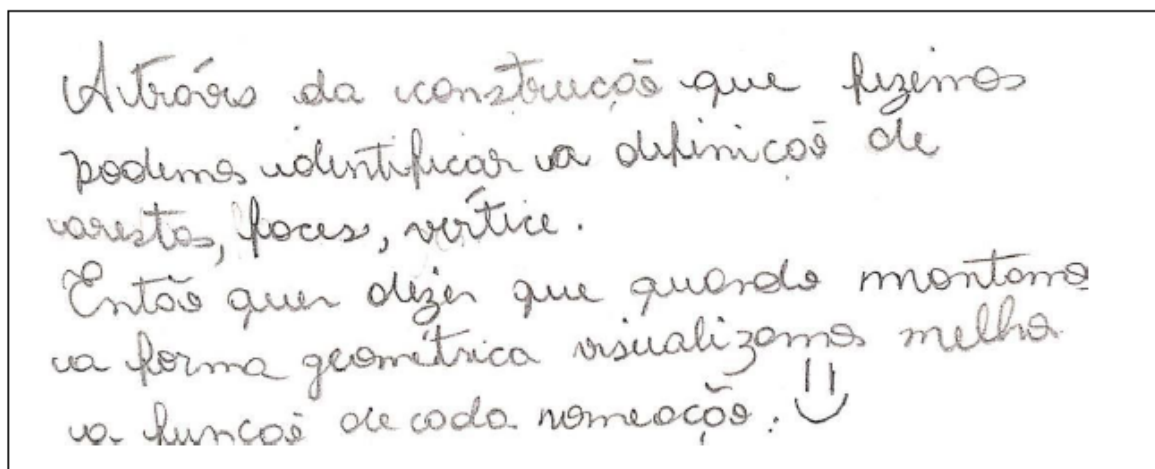 Através da construção que fizemos
podemos identificar a definição de
arestas, faces, vértice.
Então quer dizer que quando montamo
a forma geométrica visualizamos melhor
a função de cada nomeação.